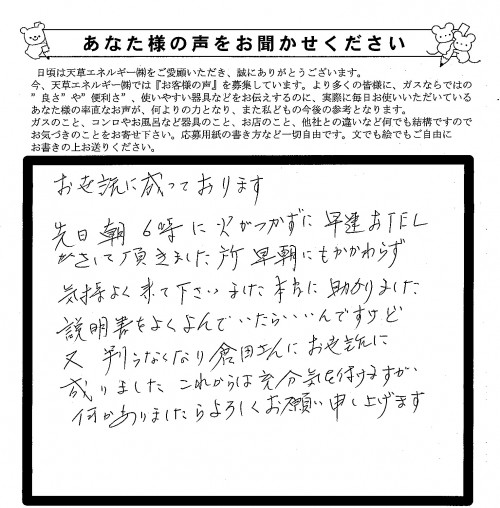 あなた様の声をお聞かせください
日頃は天草エネルギー㈱をご愛顧いただき、誠にありがとうございます。
今、天草エネルギー㈱では『お客様の声』を募集しています。より多くの皆様に、ガスならではの
"良さ"や"便利さ"、使いやすい器具などをお伝えするのに、実際に毎日お使いいただいている
あなた様の率直なお声が、何よりの力となり、また私どもの今後の参考となります。
ガスのこと、コンロやお風呂など器具のこと、お店のこと、他社との違いなど何でも結構ですので
お気づきのことをお寄せ下さい。応募用紙の書き方など一切自由です。文でも絵でもご自由に
お書きの上お送りください。
お世話に成っております
先日朝6時に火がつかずに早速おTEL
がさして頂きました所早朝にもかかわらず
気持よく来て下さいました本当に助かりました
説明書をよくよんでいたらいいんですけど
又判らなくなり倉田さんにお世話に
成りましたこれからは充分気を付けますが
何かありましたらよろしくお願い申し上げます